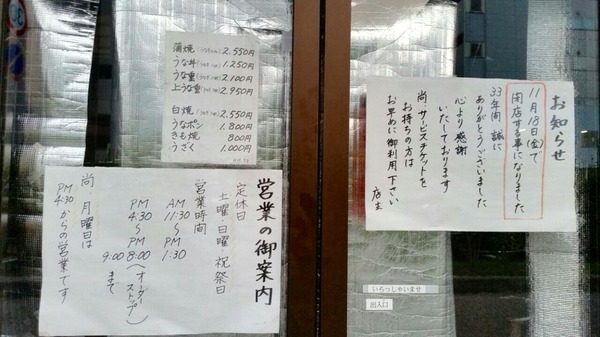 蒲焼(うなぎ一匹)2.550円
うな丼(うなぎ半匹)1.250円
うな重(うなぎ一匹)2.100円
上うな重(うなぎ一匹)2.950円
白焼(うなぎ一匹)2.550円
うなポン 1.800円
きも焼 800円
うざく 1.000円
お知らせ
11月18日(金)で
閉店する事になりました
33年間 誠に
ありがとうございました
心より感謝
いたしております
尚、サービスチケットを
お持ちの方は
お早めに御利用下さい
店主
営業の御案内
定休日
土曜・日曜 祝祭日
営業時間
AM 11:30〜PM 1:30
PM 4:30〜PM 8:00(オーダーストップ)
9:00まで
尚 月曜日は
PM 4:30からの営業です
いらっしゃいませ
出入口